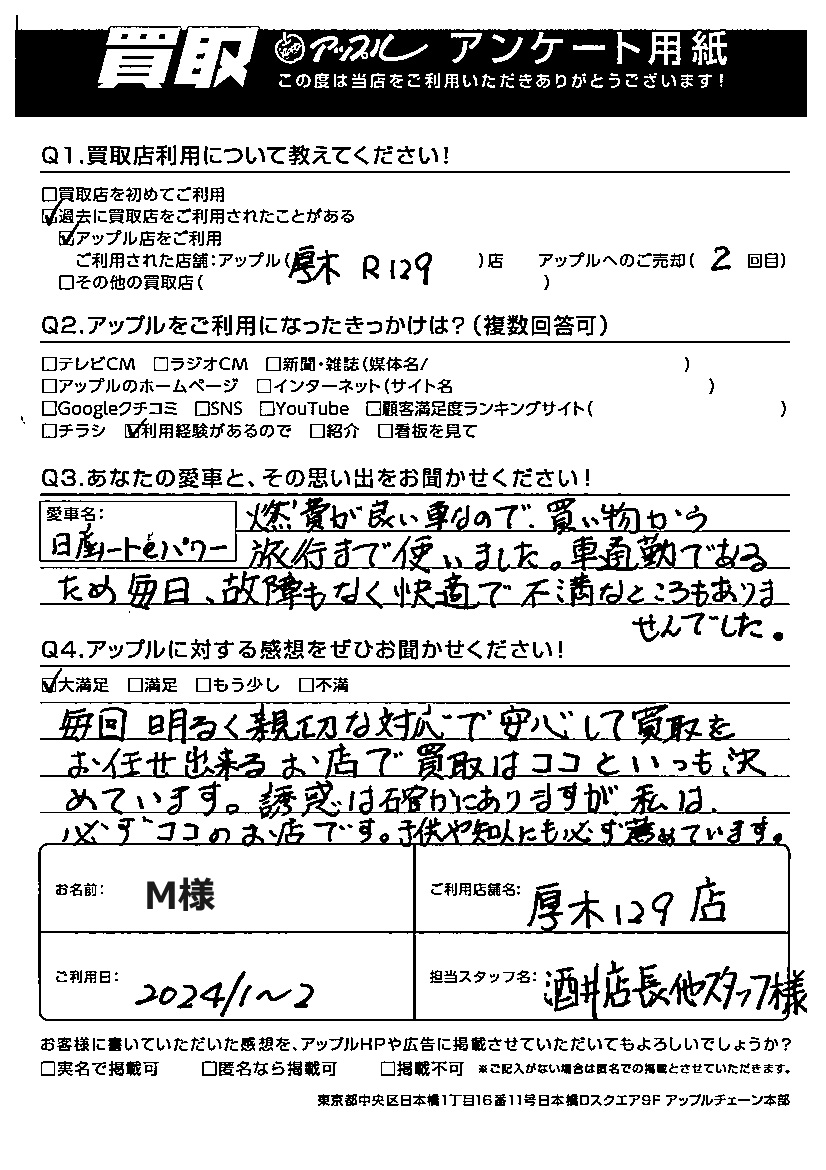 買取 アップル アンケート用紙
この度は当店をご利用いただきありがとうございます!
Q1.買取店利用について教えてください!
□買取店を初めてご利用
☑過去に買取店をご利用されたことがある
☑アップル店をご利用
ご利用された店舗:アップル(厚木 R129 )店 アップルへのご売却( 2 回目)
□その他の買取店( )
Q2.アップルをご利用になったきっかけは?(複数回答可)
□テレビCM □ラジオCM □新聞・雑誌(媒体名/ )
□アップルのホームページ □インターネット(サイト名 )
□Googleクチコミ □SNS □YouTube □顧客満足度ランキングサイト( )
□チラシ ☑利用経験があるので □紹介 □看板を見て
Q3.あなたの愛車と、その思い出をお聞かせください!
愛車名:
日産ノートeパワー
燃費が良い車なので、買い物から
旅行まで使いました。車通勤である
ため毎日、故障もなく快適で不満なところもありま
せんでした。
Q4.アップルに対する感想をぜひお聞かせください!
☑大満足 □満足 □もう少し □不満
毎回明るく親切な対応で安心して買取を
お任せ出来るお店で買取はココといつも決
めています。誘惑は確かにありますが私は、
必ずココのお店です。子供や知人にも必ず薦めています。
お名前: M様
ご利用店舗名: 厚木129店
ご利用日: 2024/1〜2
担当スタッフ名: 酒井店長他スタッフ様
お客様に書いていただいた感想を、アップルHPや広告に掲載させていただいてもよろしいでしょうか?
□実名で掲載可 □匿名なら掲載可 □掲載不可 ※ご記入がない場合は匿名での掲載とさせていただきます。
東京都中央区日本橋1丁目16番11号日本橋ロスクエア9F アップルチェーン本部